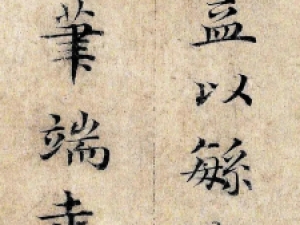 益以緐
筆端